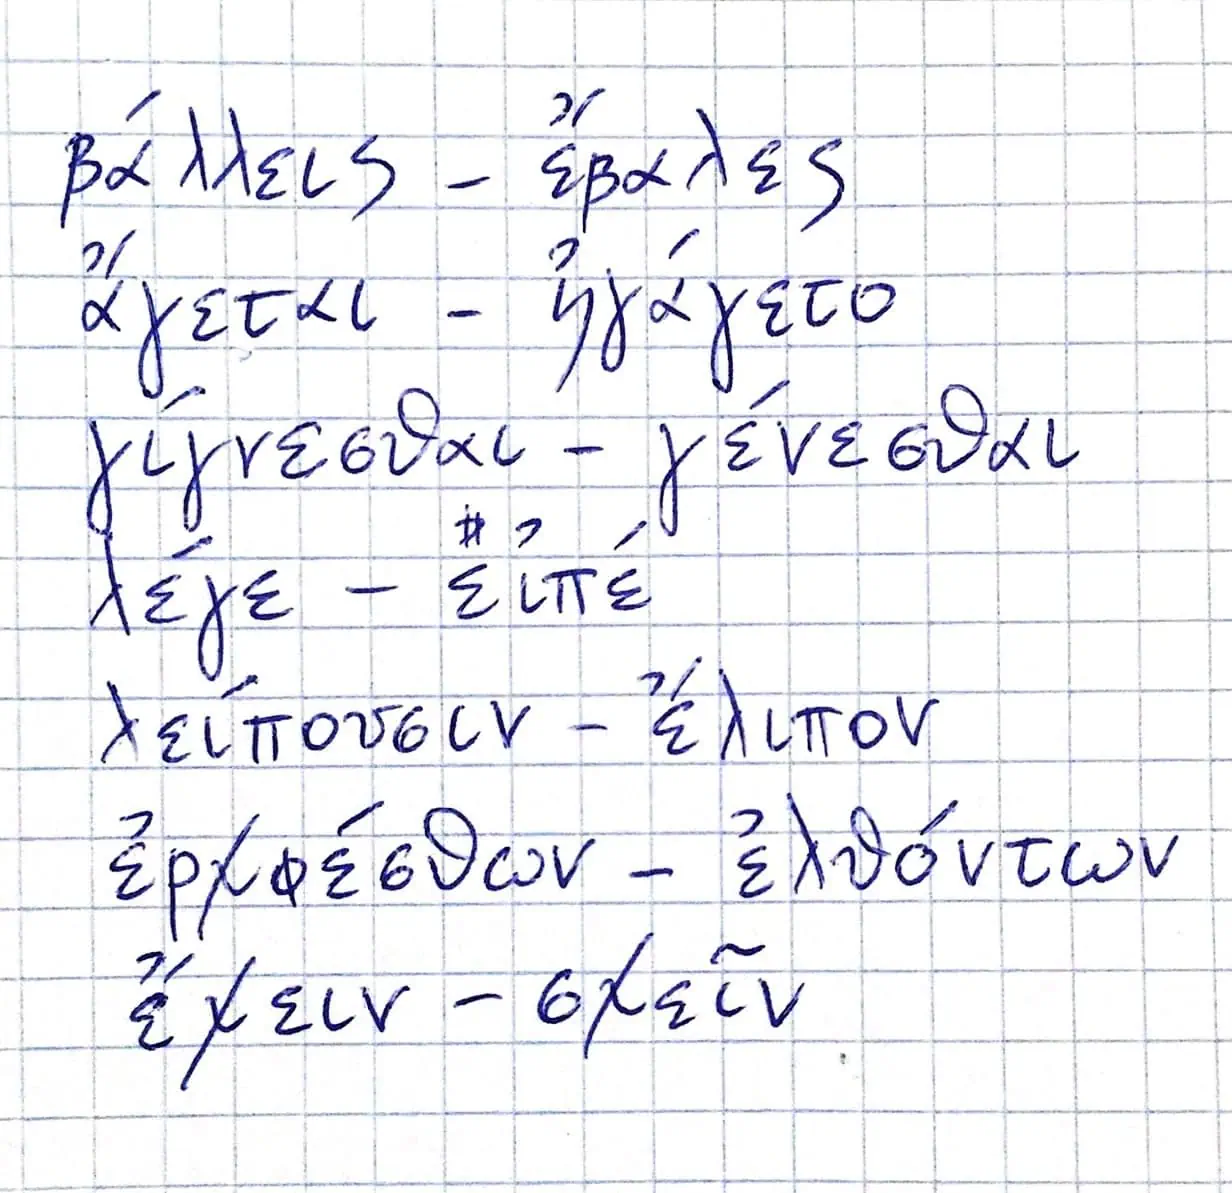 βάλλεις – ἔβαλες
ἄγεται – ἠγάγετο
γίγνεσθαι – γένεσθαι
λέγε – εἰπέ
λείπουσιν – ἔλιπον
ἐρχφέσθων – ἐλθόντων
ἔχειν – σχεῖν